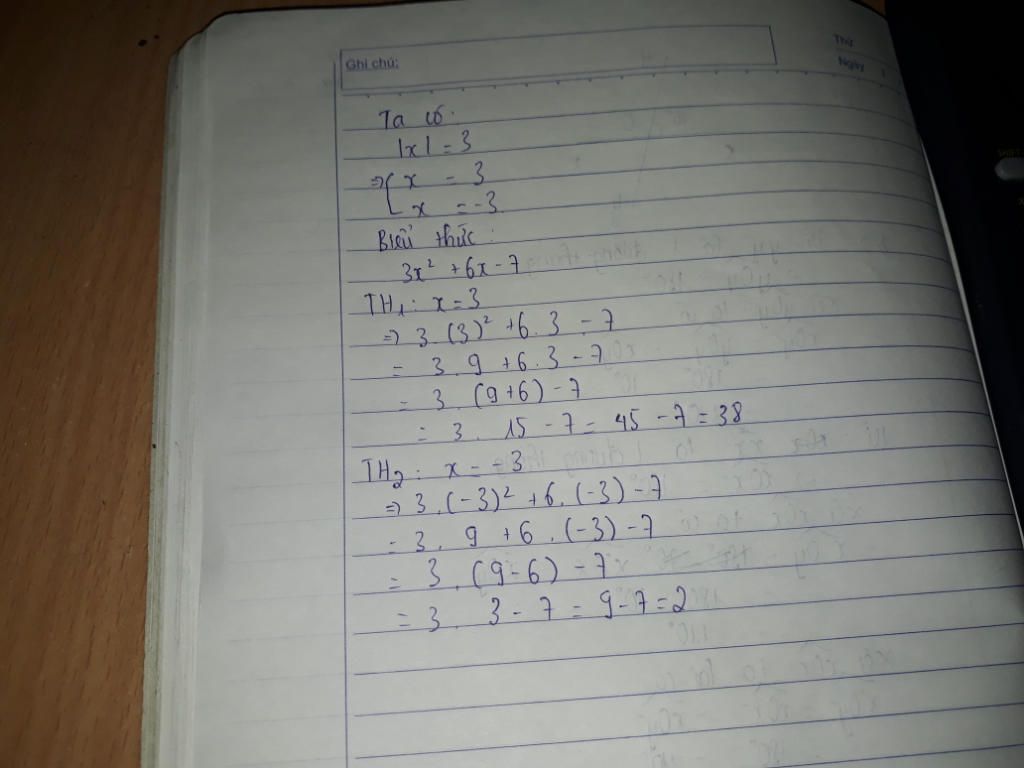 Ghi chú:
Thứ
Ngày
Ta có:
|x| = 3
⇒ [ x = 3
x = -3
Biểu thức:
3x² + 6x - 7
TH₁: x = 3
⇒ 3.(3)² + 6.3 - 7
= 3.9 + 6.3 - 7
= 3.(9+6) - 7
= 3.15 - 7 = 45 - 7 = 38
TH₂: x = -3
⇒ 3.(-3)² + 6.(-3) - 7
= 3.9 + 6.(-3) - 7
= 3.(9-6) - 7
= 3.3 - 7 = 9 - 7 = 2